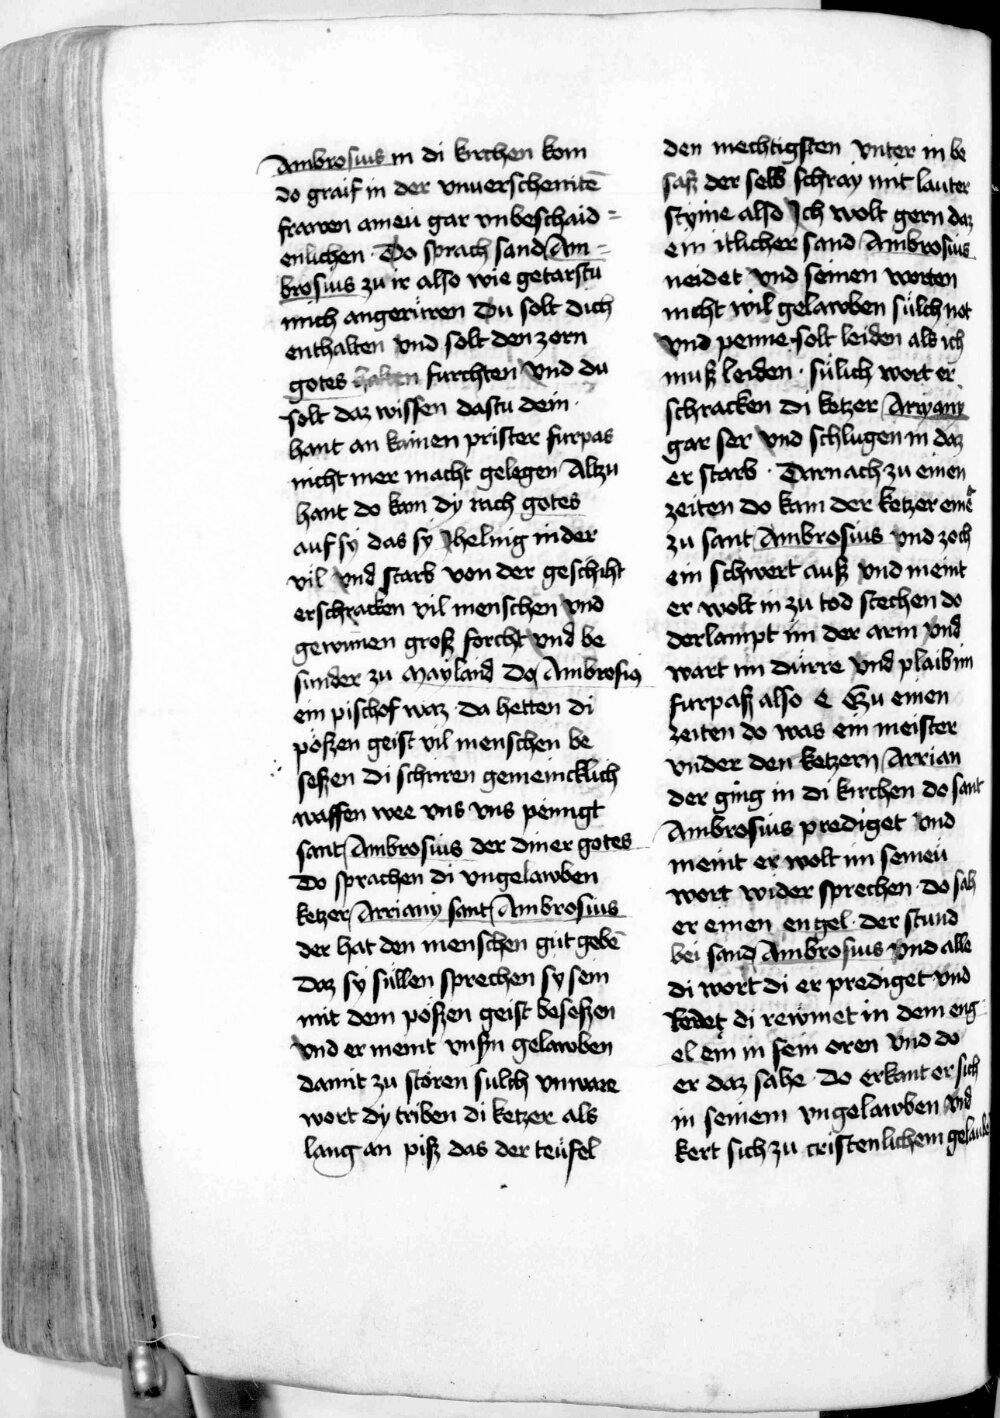 Ambrosius in di kirchen kom
do graif in der vnuerschemtē
frawen aineu gar vnbeschaid=
enlichen · Do sprach sand Am=
brosius zu ir also wie getarstu
mich angerüren Du solt dich
enthalten vnd solt den zorn
gotes halten furchten vnd du
solt daz wissen dastu dein ·
hant an kainen prister furpas
nicht mer macht gelegen Altzu
hant do kam dy rach gotes
auf sy das sy Jheling nider
vil vnd starb von der geschiht
erschracken vil menschen vnd
gewunen groß forcht vnd be
sunder zu Mayland Do Ambrosius
ein pischof waz · da hetten di
pößen geist vil menschen be
seßen di schriren gemeincklich
waffen wee vns vns peinigt
sant Ambrosius der diner gotes
Do sprachen di vngelawben
ketzer Arriany sant Ambrosius
der hat den menschen gut gebē
Daz sy süllen sprechen sy sein
mit dem pößen geist beseßen
vnd er meint vnßn gelawben
damit zu stören sulch vnware
wort dy triben di ketzer als
lang an piß das der teüfel
den mechtigsten vnter in be
saß der selb schray mit lauter
styme also Ich wolt gern daz
ein itlicher sand Ambrosius
neidet vnd seinen worten
nicht wil gelawben sülch not
vnd penne solt leiden als ich
muß leiden · sülich wort er
schracken di ketzer Arryany
gar ser vnd schlugen in daz
er starb · Darnach zu einen
zeiten do kam der ketzer einer
zu sant Ambrosius vnd zoch
ein schwert auß vnd meint
er wolt in zu tod stechen do
derlampt im der arm vnd
wart im dürre vnd plaib im
furpaß also e Zu einen
zeiten do was ein meister
vnder den ketzern Arrian
der ging in di kirchen do sant
Ambrosius prediget vnd
meint er wolt im seineu
wort wider sprechen · do sah
er einen engel · der stund
bei sand Ambrosius vnd alle
di wort di er prediget vnd
redet di rewmet in dem eng
el ein in sein oren vnd do
er daz sahe · do erkant er sich
in seinem vngelawben vnd
kert sich zu cristenlichem gelaube